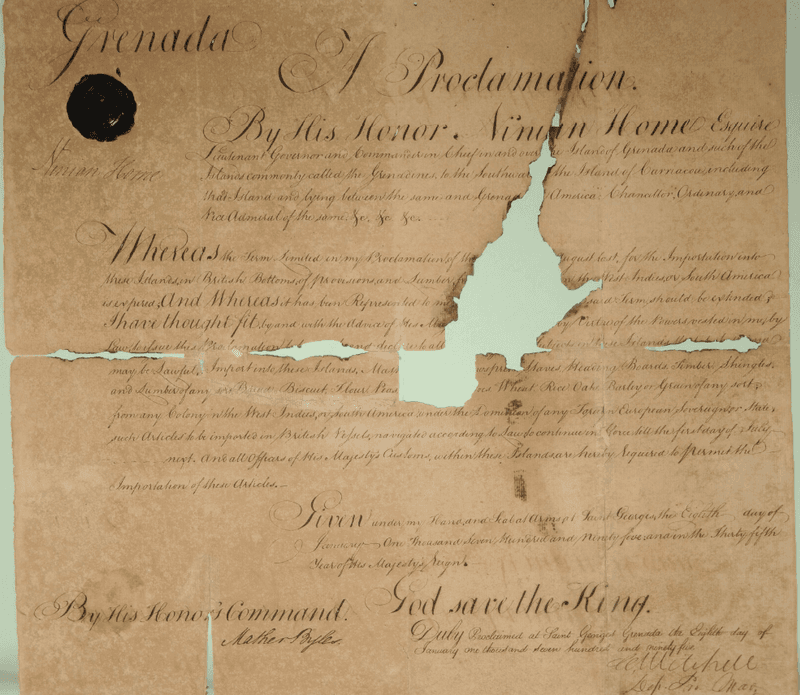 Grenada
A Proclamation.
By His Honor. Ninian Home Esquire
Ninian Home
Lieutenant Governor and Commander in Chief in and over the Island of Grenada and such of the
Islands commonly called the Grenadines, to the Southward the Island of Curriacou, including
that Island and lying between the same and Grenada America, Chancellor, Ordinary, and
Vice Admiral of the same, &c. &c. &c.
Whereas the Term limited in my Proclamation of the August last, for the Importation into
these Islands, in British Bottoms, of provisions, and Lumber, West Indies, or South America
is expired; And Whereas it has been Represented to said Term, should be extended;
I have thought fit, by and with the Advice of His by Virtue of the Powers vested in me, by
Law, to issue this Proclamation declare to all Islands that
may be Lawful, Import into these Islands, Staves Heading Boards, Timber Shingles,
and Lumber of any Bread, Biscuit, Flour Peas Wheat, Rice Oats Barley or Grain of any sort;
from any Colony in the West Indies, or South America under the Dominion of any Foreign European Sovereign or State,
such Articles to be imported in British Vessels, navigated according to Law, to continue in Force till the first day of July,
next. And all Officers of His Majesty's Customs, within these Islands, are hereby required to permit the
Importation of these Articles.
Given under my Hand, and Seal at Arms, at Saint Georges, this Eighth day of
January One thousand Seven Hundred and Ninety five, and in the Thirty fifth
Year of His Majesty's Reign.
By His Honor's Command. God save the King.
Mather Byles
Duly Proclaimed at Saint Georges Grenada the Eighth day of
January one thousand seven hundred and ninety five.
Mitchell
Dep. Pro. Mar.